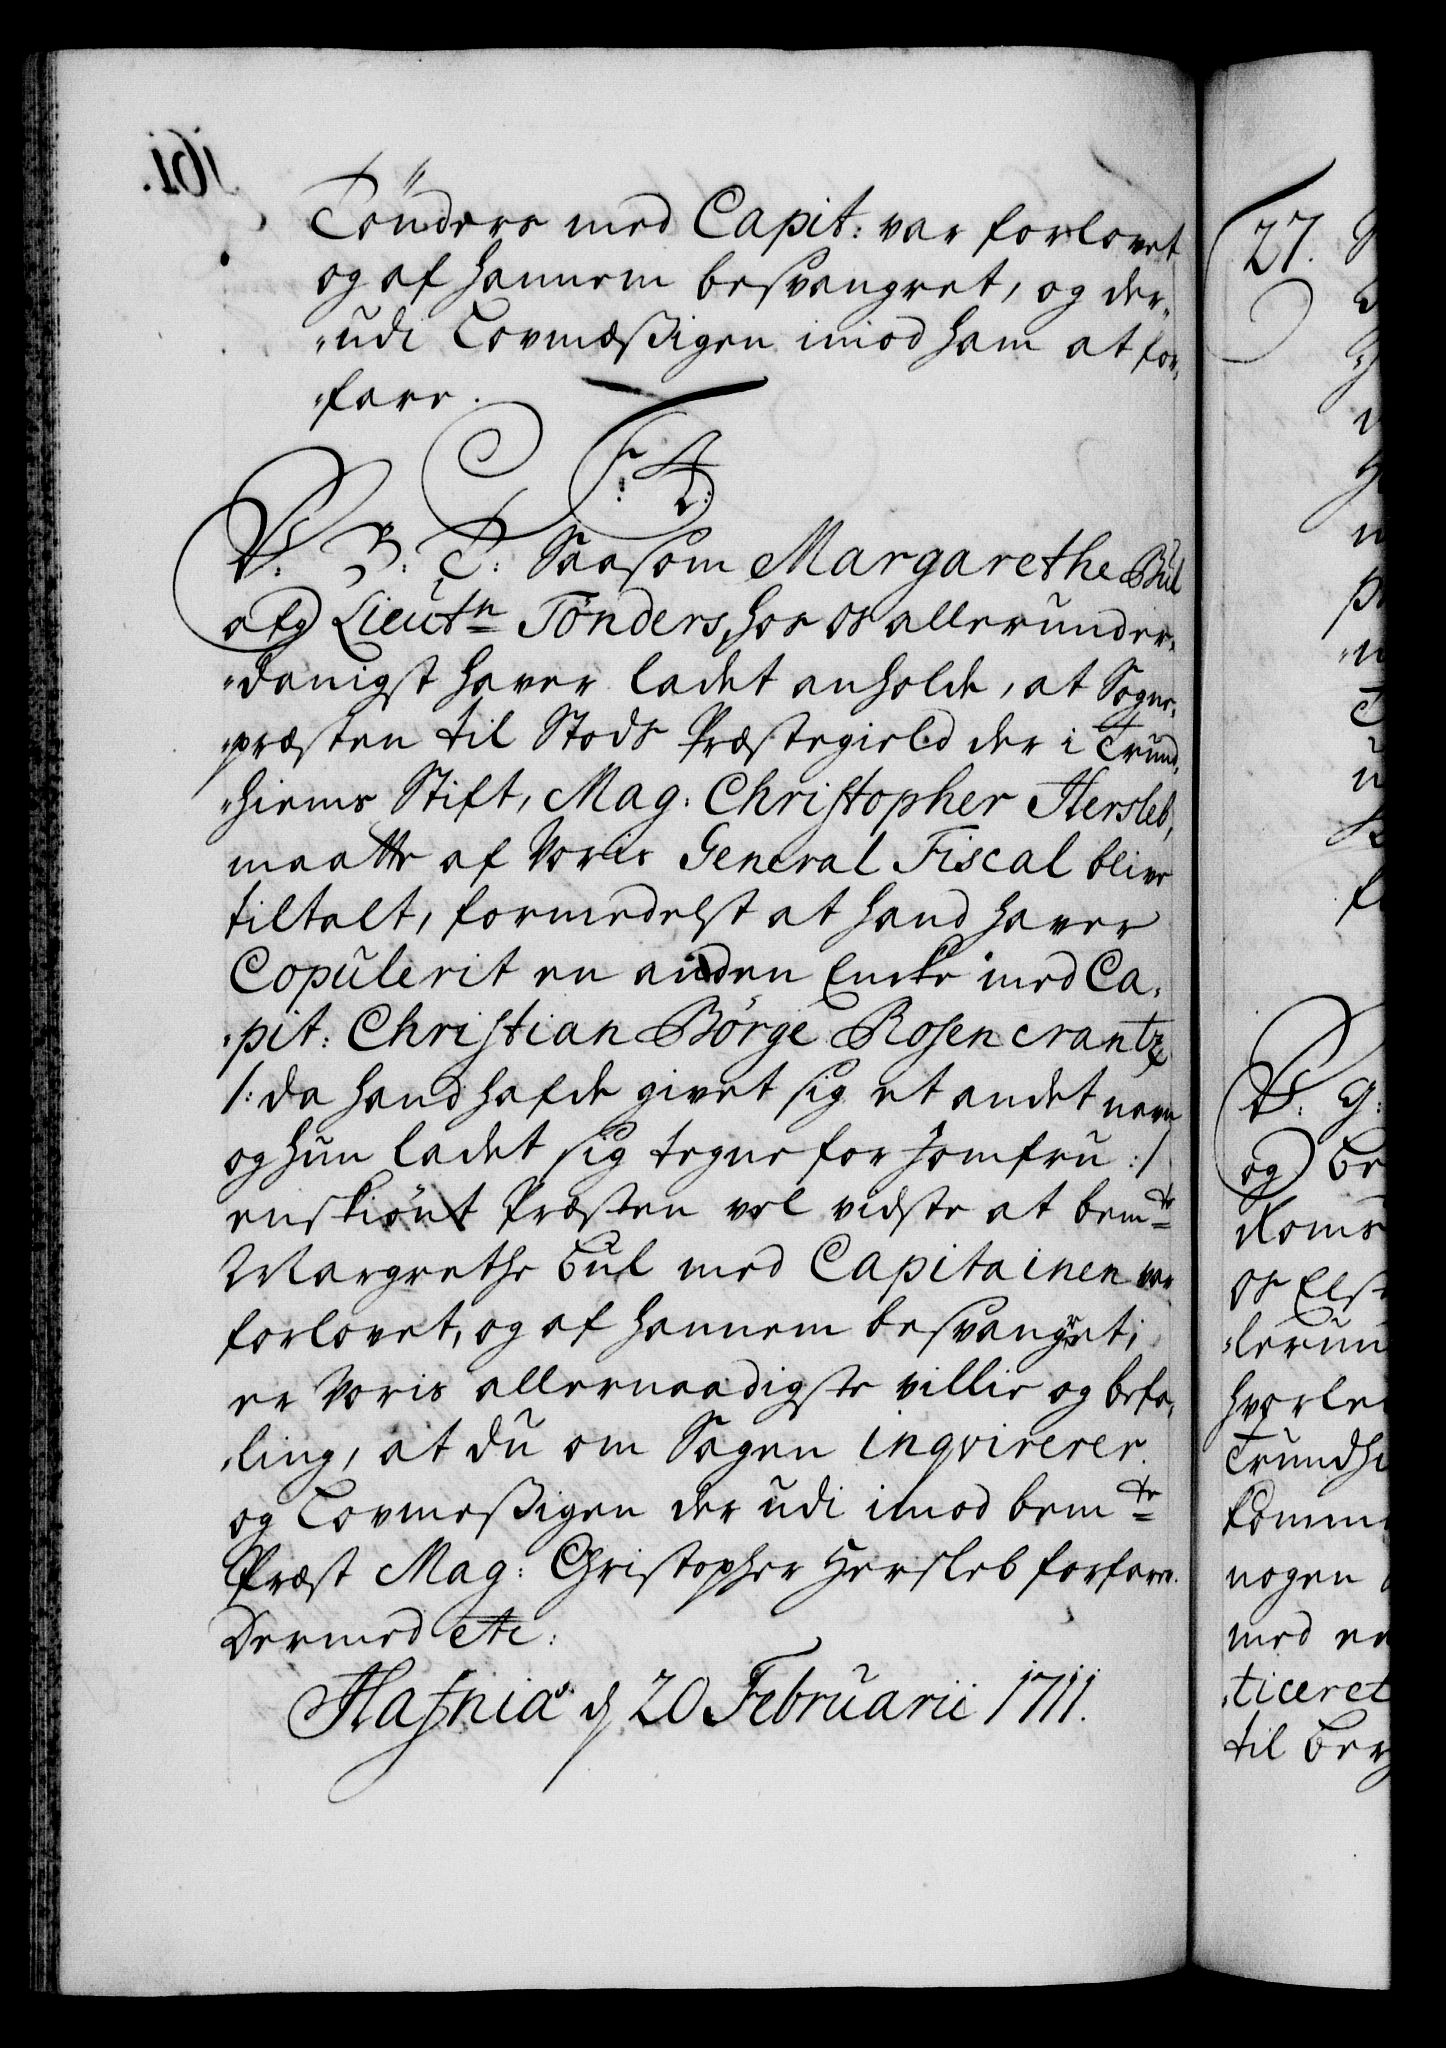 Tönders med Capit: var forlovet
og af hannem besvangret, og der„
„udi Lovmæßigen imod ham at for„
„fare.
F. 4.
V. G. T: Saasom Margarethe Bul
afg Lieutn Tönders, hos os allerunder„
„danigst haver ladet anholde, at Sogne„
„præsten til Stods Præstegield der i Trund„
„hiems Stift, Mag: Christopher Hersleb,
maatte af Voris General Fiscal blive
tiltalt, formedelst at hand haver
Copulerit en anden Encke med Ca„
„pit: Christian Börge Rosencrantz
/: da hand hafde givet sig et andet navn
og hun ladet sig tegne for Jomfru :/
enskiönt Præsten vel vidste at bemte
Margrethe Bul med Capitainen var
forlovet, og af hannem besvangret;
er Voris allernaadigste villie og befa„
„ling, at du om Sagen inqvirerer
og Lovmeßigen der udi imod bemte
Præst Mag: Christopher Hersleb forfare.
Dermed etc:
Hafniæ d 20 Februarii 1711.
161.
27.
V. G:
og Be
Roms
os Els
„lerun
hvorle
Trundhi
komme
nogen
med en
„ticeret
til Ber